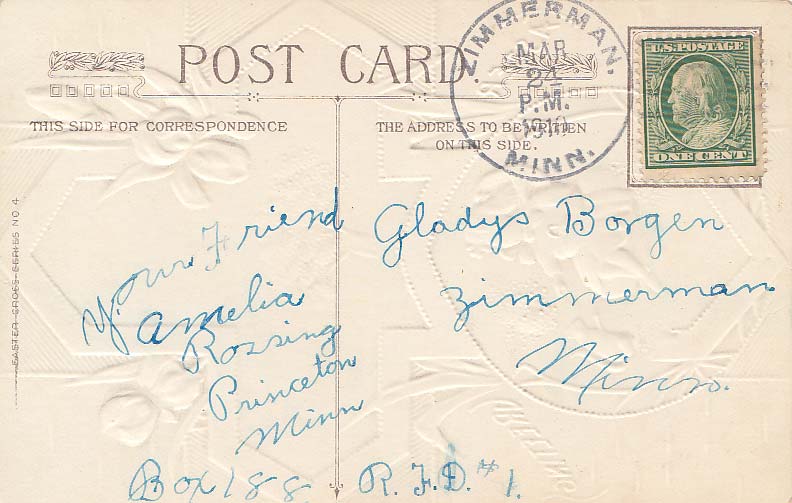 POST CARD.
ZIMMERMAN,
MAR
24
P.M.
1910
MINN.
U.S. POSTAGE
ONE CENT
THIS SIDE FOR CORRESPONDENCE
THE ADDRESS TO BE WRITTEN
ON THIS SIDE.
EASTER CROSS-SERIES NO. 4
Your Friend
Amelia
Rossing
Princeton
Minn
Box 188 R.F.D. #1.
Gladys Borgen
Zimmerman
Minn.